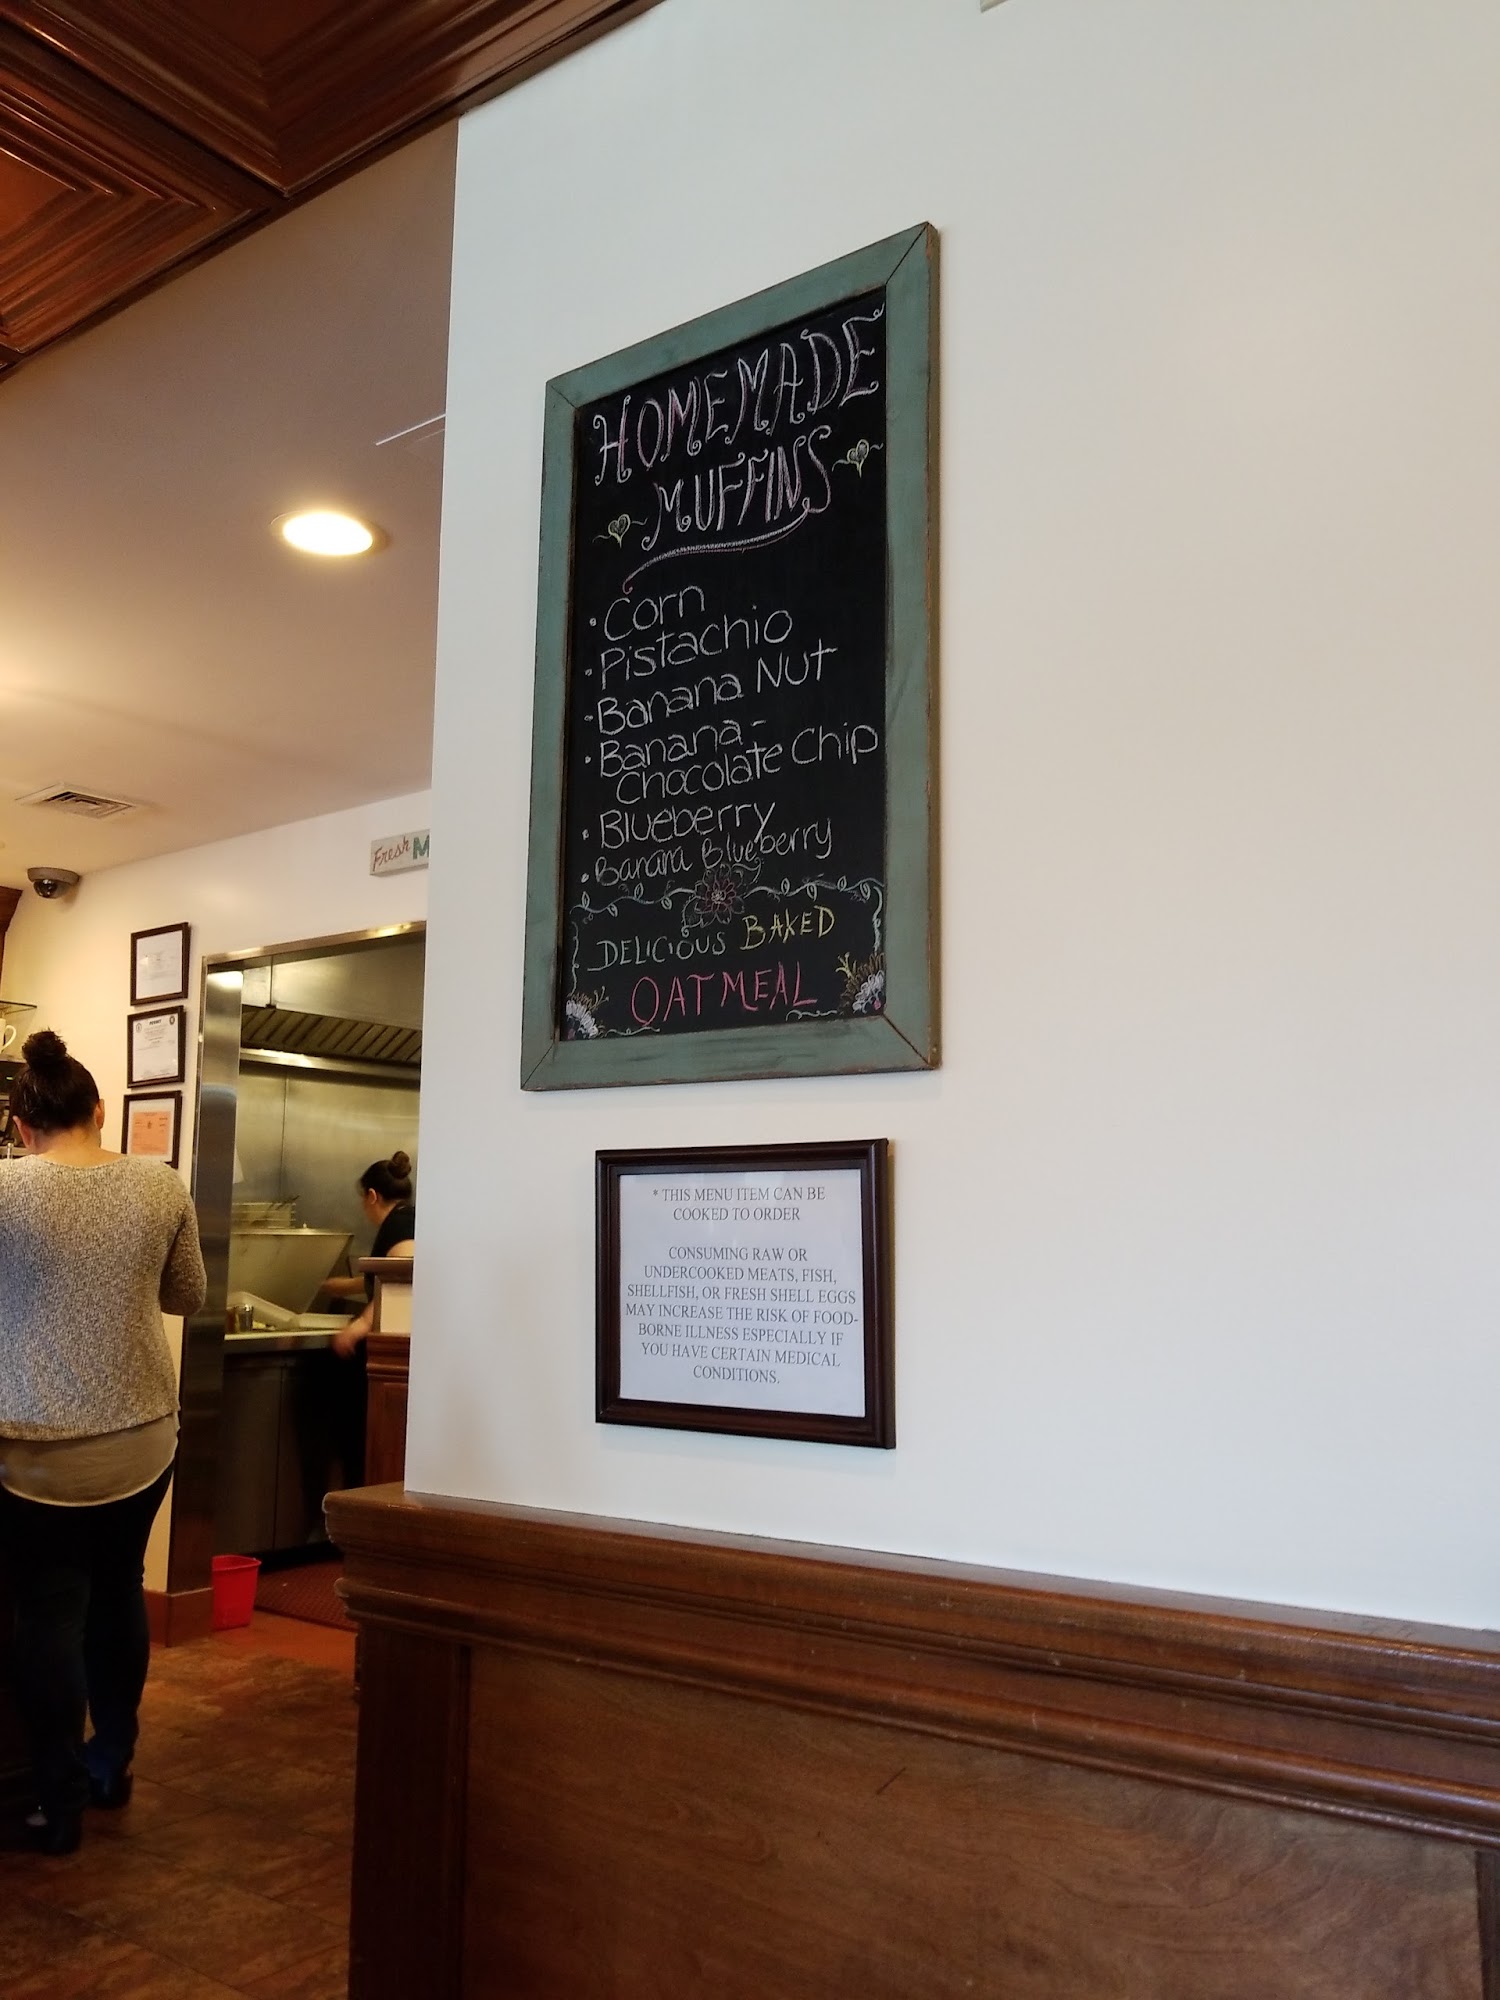 HOMEMADE
MUFFINS
• Corn
• Pistachio
• Banana Nut
• Banana-
Chocolate Chip
• Blueberry
• Banana Blueberry
DELICIOUS BAKED
OATMEAL
Fresh
* THIS MENU ITEM CAN BE
COOKED TO ORDER
CONSUMING RAW OR
UNDERCOOKED MEATS, FISH,
SHELLFISH, OR FRESH SHELL EGGS
MAY INCREASE THE RISK OF FOOD-
BORNE ILLNESS ESPECIALLY IF
YOU HAVE CERTAIN MEDICAL
CONDITIONS.